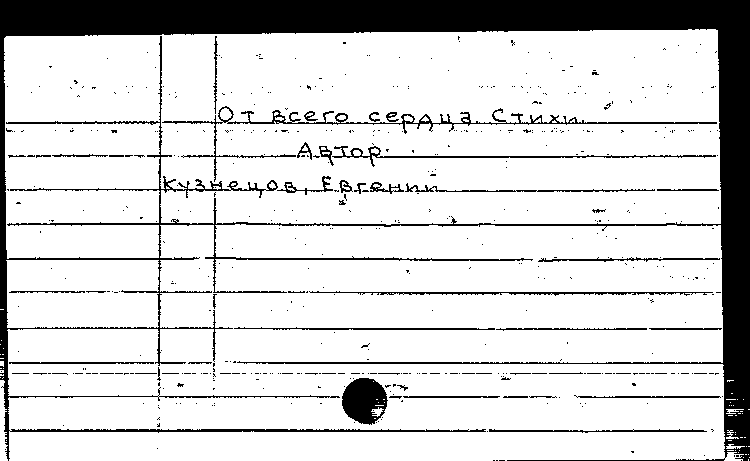 От всего сердца. Стихи.
Автор.
Кузнецов, Евгении